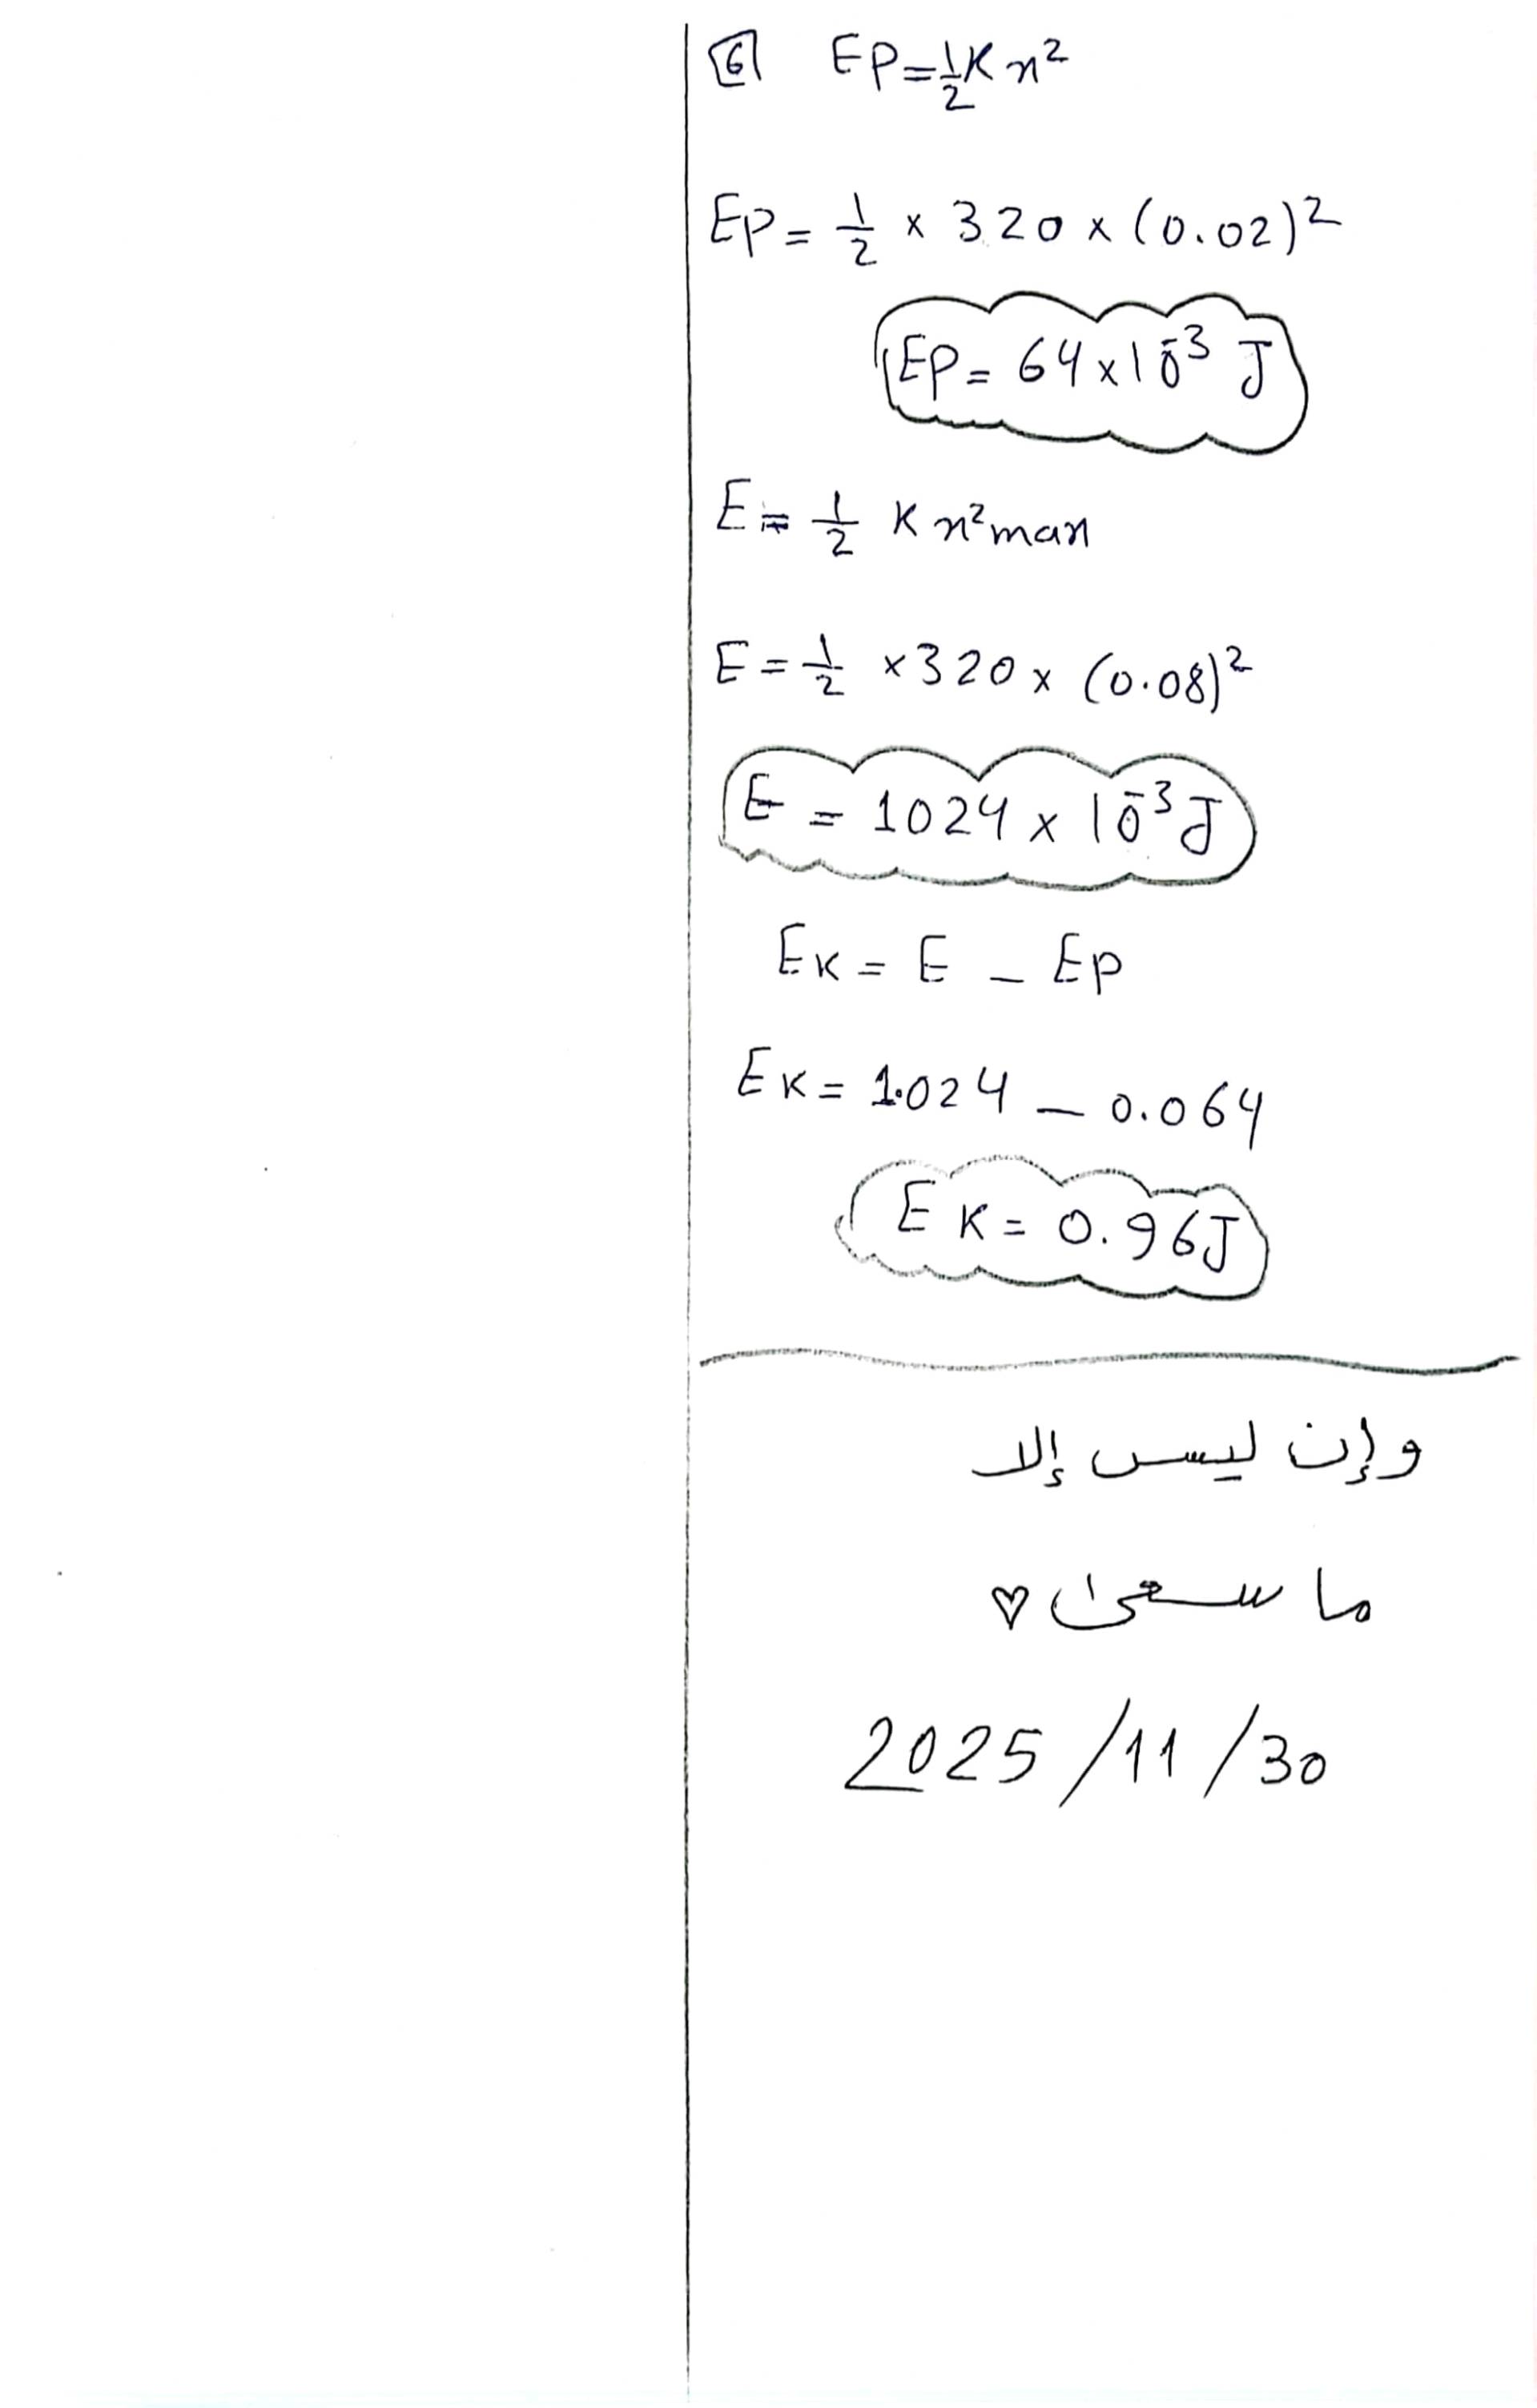 6 EP=1/2 K x²
EP = 1/2 × 320 × (0.02)²
EP = 64×10⁻³ J
E = 1/2 K x²max
E = 1/2 ×320× (0.08)²
E = 1024 × 10⁻³ J
EK = E - EP
EK = 1.024 - 0.064
EK = 0.96J
وإن ليس إلا
ما سعى ♡
2025/11/30